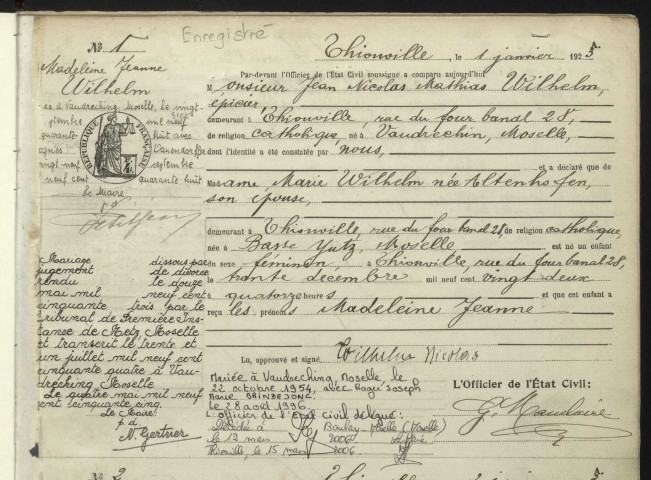 N° 1
Enregistré
Thionville, le 1 janvier 1925
Par-devant l'Officier de l'État Civil soussigné a comparu aujourd'hui
Monsieur Jean Nicolas Mathias Wilhelm,
épicier,
demeurant à Thionville, rue du four banal 28,
de religion catholique, né à Vaudrechin, Moselle,
dont l'identité a été constatée par nous,
et a déclaré que
Madame Marie Wilhelm née Altenhofen,
son épouse,
demeurant à Thionville, rue du four banal 28, de religion catholique,
née à Basse Yutz, Moselle est né un enfant
de sexe féminin à Thionville, rue du four banal 28,
le trente décembre mil neuf cent vingt deux
à quatorze heures et que cet enfant a
reçu les prénoms Madeleine Jeanne
Lu, approuvé et signé Wilhelm Nicolas
L'Officier de l'État Civil:
Madeleine Jeanne
Wilhelm
née à Vaudreching Moselle, le vingt-
septembre mil neuf
quarante huit avec
vingt-neuf septembre
neuf cent quarante huit
Le Maire:
p.d.
RÉPUBLIQUE FRANÇAISE
Mariage dissous par
jugement de divorce
rendu le douze
mai mil neuf cent
cinquante trois par le
Tribunal de Première Ins-
tance de Metz Moselle
et transcrit le trente et
un juillet mil neuf cent
cinquante quatre à Vau-
dreching Moselle
Le quatre mai mil neuf
cent cinquante cinq.
Le Maire:
p.d.
N. Gertner
Mariée à Vaudreching, Moselle, le
22 octobre 1954, avec Roger Joseph
Marie GRINBEJONC.
Le 28 août 1996.
L'Officier de l'Etat Civil délégué:
Décédée à Boulay-Moselle (Moselle)
le 12 mars 2006.
Thionville, le 15 mars 2006.
N° 2